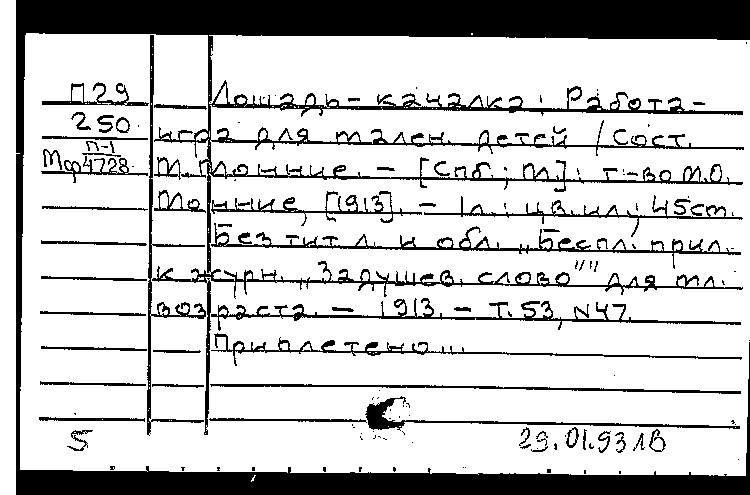 П29 Лошадь-качалка: Работа-
250 игра для мален. детей / Сост.
П-1
Мф4728 М. Монние. – [Спб.; М.]: т-во М.О.
Монние, [1913]. – 1л.: цв.ил.; 45см.
Без тит л. и обл. „Беспл. прил.
к журн. „Задушев. слово"" для мл.
возраста. – 1913. – Т. 53, N47.
Приплетено...
5 29.01.93